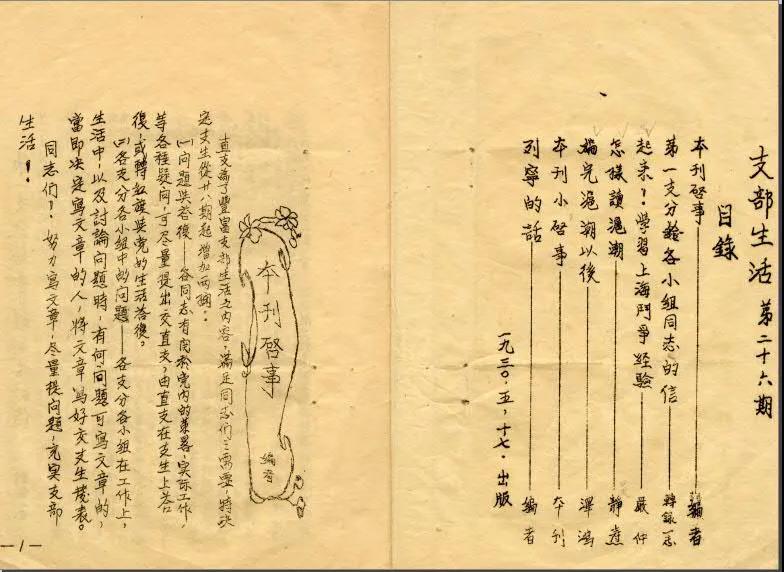 支部生活 第二十六期
目錄
本刊啓事 編者
第一支分給各小組同志的信 轉錄
起来!學習上海鬥爭經驗
怎樣讀滬潮 靜
編完滬潮以後 澤鴻
本刊小啓事 本刊
列寧的話 編者
一九三〇.五,十七.出版
本刊啓事
編者
直支為了豐富支部生活之内容,滿足同志们之需要,特决
定支生從廿八期起增加两欄:
㈠问題與答復——各同志有関於党内的策畧,实际工作,
等各種疑问,可尽量提出交直支,由直支在支生上答
復,或轉紅旗與党的生活答復。
㈡各支分各小组中的问題——各支分各小组在工作上,
生活中,以及討論问題時,有何问題可寫文章的,
當即决定寫文章的人,将文章寫好交支生發表。
同志们!努力寫文章,尽量提问題,充实支部
生活!
—1—